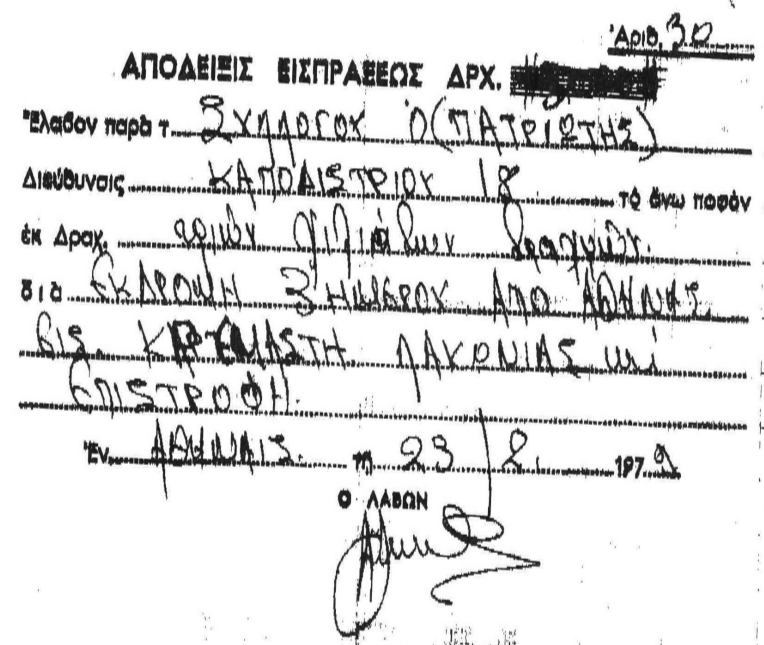 Ἀριθ. 30
ΑΠΟΔΕΙΞΙΣ ΕΙΣΠΡΑΞΕΩΣ ΔΡΧ.
Ἔλαβον παρὰ τ. ΣΥΛΛΟΓΟΥ Ο (ΠΑΤΡΙΩΤΗΣ)
Διεύθυνσις ΚΑΠΟΔΙΣΤΡΙΟΥ 18 τὸ ἄνω ποσὸν
ἐκ Δραχ. τριών χιλιάδων δραχμών.
διὰ ΕΚΔΡΟΜΗ 3 ΗΜΕΡΟΥ ΑΠΟ ΑΘΗΝΑΣ
ΕΙΣ ΚΡΕΜΑΣΤΗ ΛΑΚΩΝΙΑΣ καί
ΕΠΙΣΤΡΟΦΗ.
Ἐν ΑΘΗΝΑΙΣ. τῇ 23/2. 1979
Ο ΛΑΒΩΝ